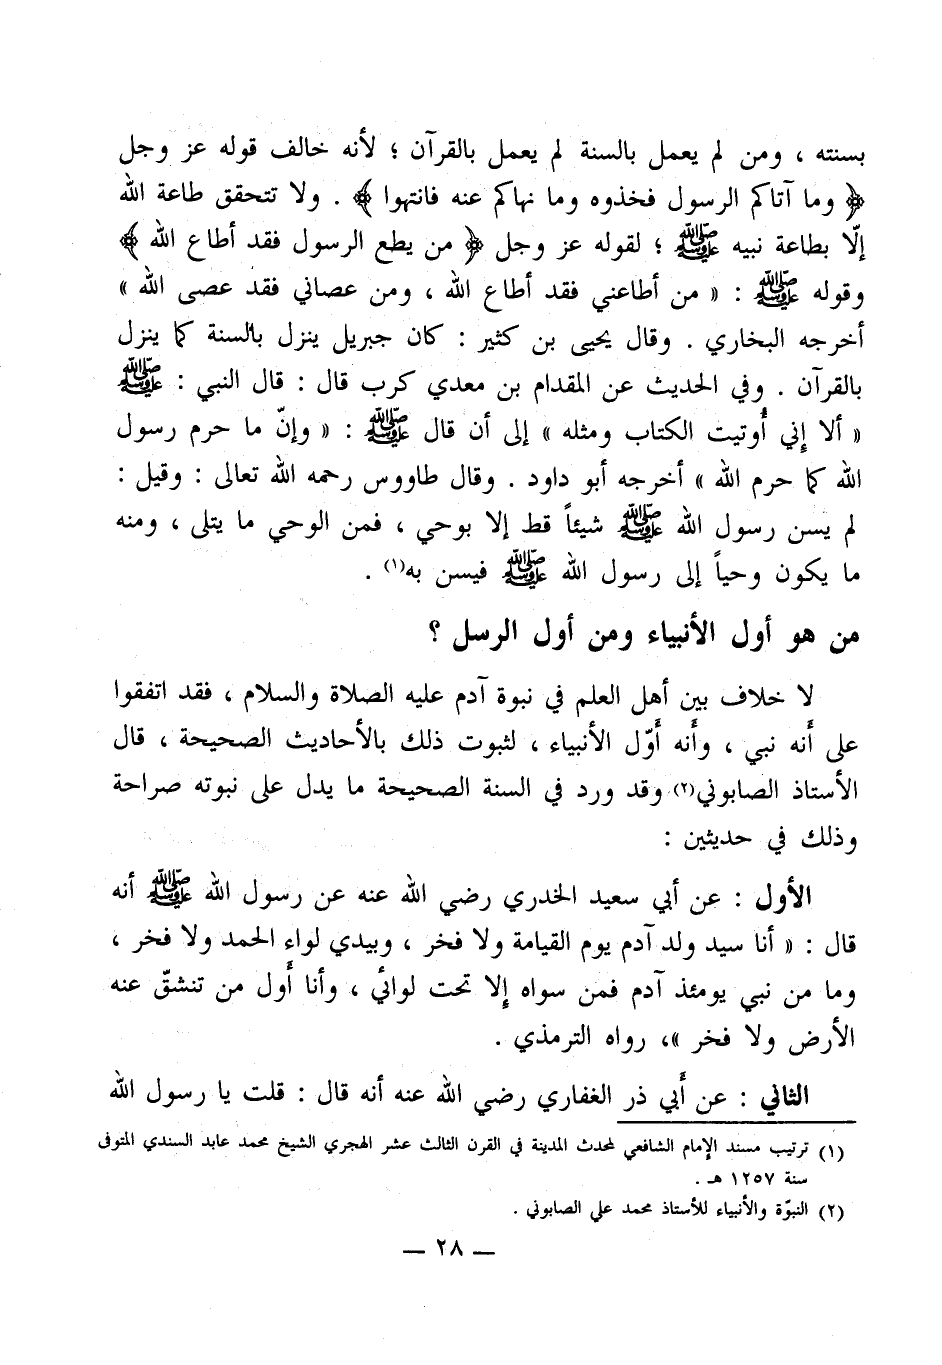 بسنته ، ومن لم يعمل بالسنة لم يعمل بالقرآن ؛ لأنه خالف قوله عز وجل
﴿ وما آتاكم الرسول فخذوه وما نهاكم عنه فانتهوا ﴾ . ولا تتحقق طاعة الله
إلّا بطاعة نبيه ﷺ ؛ لقوله عز وجل ﴿ من يطع الرسول فقد أطاع الله ﴾
وقوله ﷺ : « من أطاعني فقد أطاع الله ، ومن عصاني فقد عصى الله »
أخرجه البخاري . وقال يحيى بن كثير : كان جبريل ينزل بالسنة كما ينزل
بالقرآن . وفي الحديث عن المقدام بن معدي كرب قال : قال النبي : ﷺ
« ألا إني أُوتيت الكتاب ومثله » إلى أن قال ﷺ : « وإنّ ما حرم رسول
الله كما حرم الله » أخرجه أبو داود . وقال طاووس رحمه الله تعالى : وقيل :
لم يسن رسول الله ﷺ شيئاً قط إلا بوحي ، فمن الوحي ما يتلى ، ومنه
ما يكون وحياً إلى رسول الله ﷺ فيسن به(١) .
من هو أول الأنبياء ومن أول الرسل ؟
لا خلاف بين أهل العلم في نبوة آدم عليه الصلاة والسلام ، فقد اتفقوا
على أَنه نبي ، وأَنه أَوّل الأنبياء ، لثبوت ذلك بالأحاديث الصحيحة ، قال
الأستاذ الصابوني(٢) وقد ورد في السنة الصحيحة ما يدل على نبوته صراحة
وذلك في حديثين :
الأول : عن أبي سعيد الخدري رضي الله عنه عن رسول الله ﷺ أنه
قال : « أنا سيد ولد آدم يوم القيامة ولا فخر ، وبيدي لواء الحمد ولا فخر ،
وما من نبي يومئذ آدم فمن سواه إِلا تحت لوائي ، وأنا أَول من تنشقّ عنه
الأرض ولا فخر »، رواه الترمذي .
الثاني : عن أَبي ذر الغفاري رضي الله عنه أنه قال : قلت يا رسول الله
(١) ترتيب مسند الإمام الشافعي لمحدث المدينة في القرن الثالث عشر الهجري الشيخ محمد عابد السندي المتوفى
سنة ١٢٥٧ هـ .
(٢) النبوّة والأنبياء للأستاذ محمد علي الصابوني .
— ٢٨ —